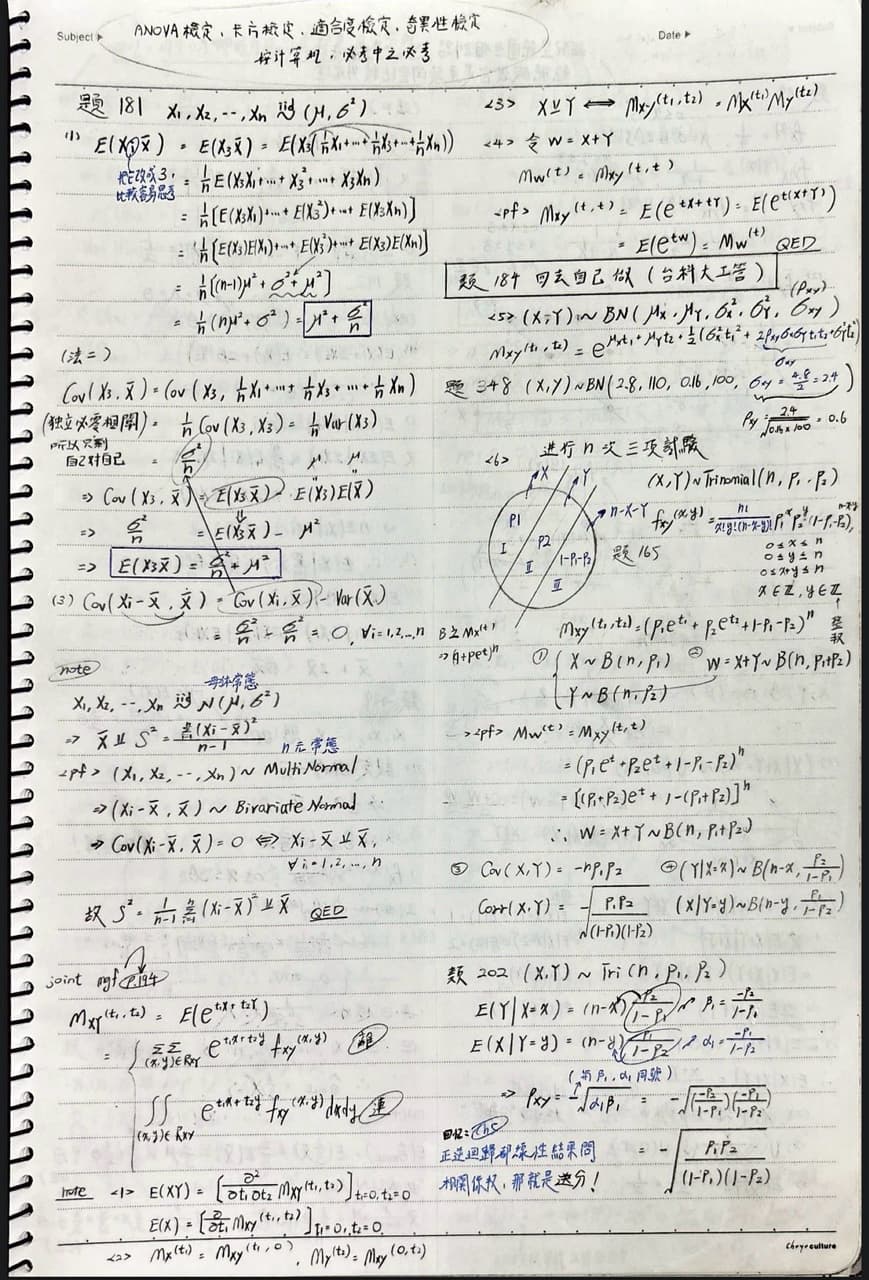 Subject ▶
Date ▶
ANOVA檢定、卡方檢定、適合度檢定、奇異性檢定
按計算机,必考中之必考
題 181 X₁, X₂, ⋯, Xₙ iid (μ, σ²)
(1) E(XᵢX̄) = E(X₃X̄) = E(X₃(1/n X₁+⋯+1/n X₃+⋯+1/n Xₙ))
把i改成3,
比較容易思考
= 1/n E(X₃X₁+⋯+X₃²+⋯+X₃Xₙ)
= 1/n [E(X₃X₁)+⋯+E(X₃²)+⋯+E(X₃Xₙ)]
= 1/n [E(X₃)E(X₁)+⋯+E(X₃²)+⋯+E(X₃)E(Xₙ)]
= 1/n [(n-1)μ²+σ²+μ²]
= 1/n (nμ²+σ²) = μ²+σ²/n
(法二)
Cov(X₃, X̄) = Cov(X₃, 1/n X₁+⋯+1/n X₃+⋯+1/n Xₙ)
(獨立必零相關) = 1/n Cov(X₃, X₃) = 1/n Var(X₃)
所以只剩
自己對自己 = σ²/n μ μ
⇒ Cov(X₃, X̄) = E(X₃X̄) - E(X₃)E(X̄)
⇒ σ²/n = E(X₃X̄) - μ²
⇒ E(X₃X̄) = σ²/n + μ²
(3) Cov(Xᵢ-X̄, X̄) = Cov(Xᵢ, X̄) - Var(X̄)
= σ²/n - σ²/n = 0, ∀i=1,2,…,n
note
母体常態
X₁, X₂, ⋯, Xₙ iid N(μ, σ²)
⇒ X̄ ⫫ S² = Σ(Xᵢ-X̄)²/(n-1)
n元常態
<pf> (X₁, X₂, ⋯, Xₙ) ~ MultiNormal
⇒ (Xᵢ-X̄, X̄) ~ Bivariate Normal
⇒ Cov(Xᵢ-X̄, X̄) = 0 ⟺ Xᵢ-X̄ ⫫ X̄,
∀i=1,2,…,n
故 S² = 1/(n-1) Σᵢ₌₁ⁿ (Xᵢ-X̄)² ⫫ X̄ QED
joint mgf P.194
M_XY(t₁,t₂) = E(e^(t₁X+t₂Y))
= { ΣΣ_(x,y)∈R_XY e^(t₁x+t₂y) f_XY(x,y) 離
∬_(x,y)∈R_XY e^(t₁x+t₂y) f_XY(x,y) dxdy 連
note <1> E(XY) = [∂²/∂t₁∂t₂ M_XY(t₁,t₂)] t₁=0, t₂=0
E(X) = [∂/∂t₁ M_XY(t₁,t₂)] t₁=0, t₂=0
<2> M_X(t₁) = M_XY(t₁,0), M_Y(t₂) = M_XY(0,t₂)
<3> X⫫Y ⟺ M_XY(t₁,t₂) = M_X(t₁)M_Y(t₂)
<4> 令 W=X+Y
M_W(t) = M_XY(t,t)
<pf> M_XY(t,t) = E(e^(tX+tY)) = E(e^(t(X+Y)))
= E(e^(tW)) = M_W(t) QED
題 184 回去自己做 (台科大工管)
<5> (X,Y) ~ BN(μ_X, μ_Y, σ_X², σ_Y², σ_XY) (ρ_XY)
M_XY(t₁,t₂) = e^(μ_X t₁+μ_Y t₂+½(σ_X²t₁²+2ρ_XYσ_Xσ_Y t₁t₂+σ_Y²t₂²))
σ_XY
題 348 (X,Y) ~ BN(2.8, 110, 0.16, 100, σ_XY = 4.8/2 = 2.4)
ρ_XY = 2.4/√(0.16×100) = 0.6
<6> 進行 n 次三項試驗
X Y n-X-Y
P1 P2 1-P1-P2
I II III
(X,Y) ~ Trinomial(n, p₁, p₂)
f_XY(x,y) = n!/(x!y!(n-x-y)!) p₁ˣp₂ʸ(1-p₁-p₂)ⁿ⁻ˣ⁻ʸ,
題 165
0≤x≤n
0≤y≤n
0≤x+y≤n
x∈ℤ, y∈ℤ
整數
M_XY(t₁,t₂) = (p₁e^t₁+p₂e^t₂+1-p₁-p₂)ⁿ
① { X~B(n,p₁) ② W=X+Y~B(n,p₁+p₂)
Y~B(n,p₂)
<pf> M_W(t) = M_XY(t,t)
= (p₁eᵗ+p₂eᵗ+1-p₁-p₂)ⁿ
= [(p₁+p₂)eᵗ+1-(p₁+p₂)]ⁿ
∴ W=X+Y~B(n,p₁+p₂)
③ Cov(X,Y) = -np₁p₂ ④ (Y|X=x)~B(n-x, p₂/(1-p₁))
Corr(X,Y) = -√(p₁p₂/((1-p₁)(1-p₂))) (X|Y=y)~B(n-y, p₁/(1-p₂))
題 202 (X,Y) ~ Tri(n, p₁, p₂)
E(Y|X=x) = (n-x) p₂/(1-p₁) β₁ = -p₂/(1-p₁)
E(X|Y=y) = (n-y) p₁/(1-p₂) α₁ = -p₁/(1-p₂)
(與 β₁, α₁ 同號)
⇒ ρ_XY = -√(α₁β₁) = -√((-p₂/(1-p₁))(-p₁/(1-p₂)))
= -√(p₁p₂/((1-p₁)(1-p₂)))
回憶: Ch5
正逆迴歸都線性結果問
相關係數,那就是送分!
Chryoculture